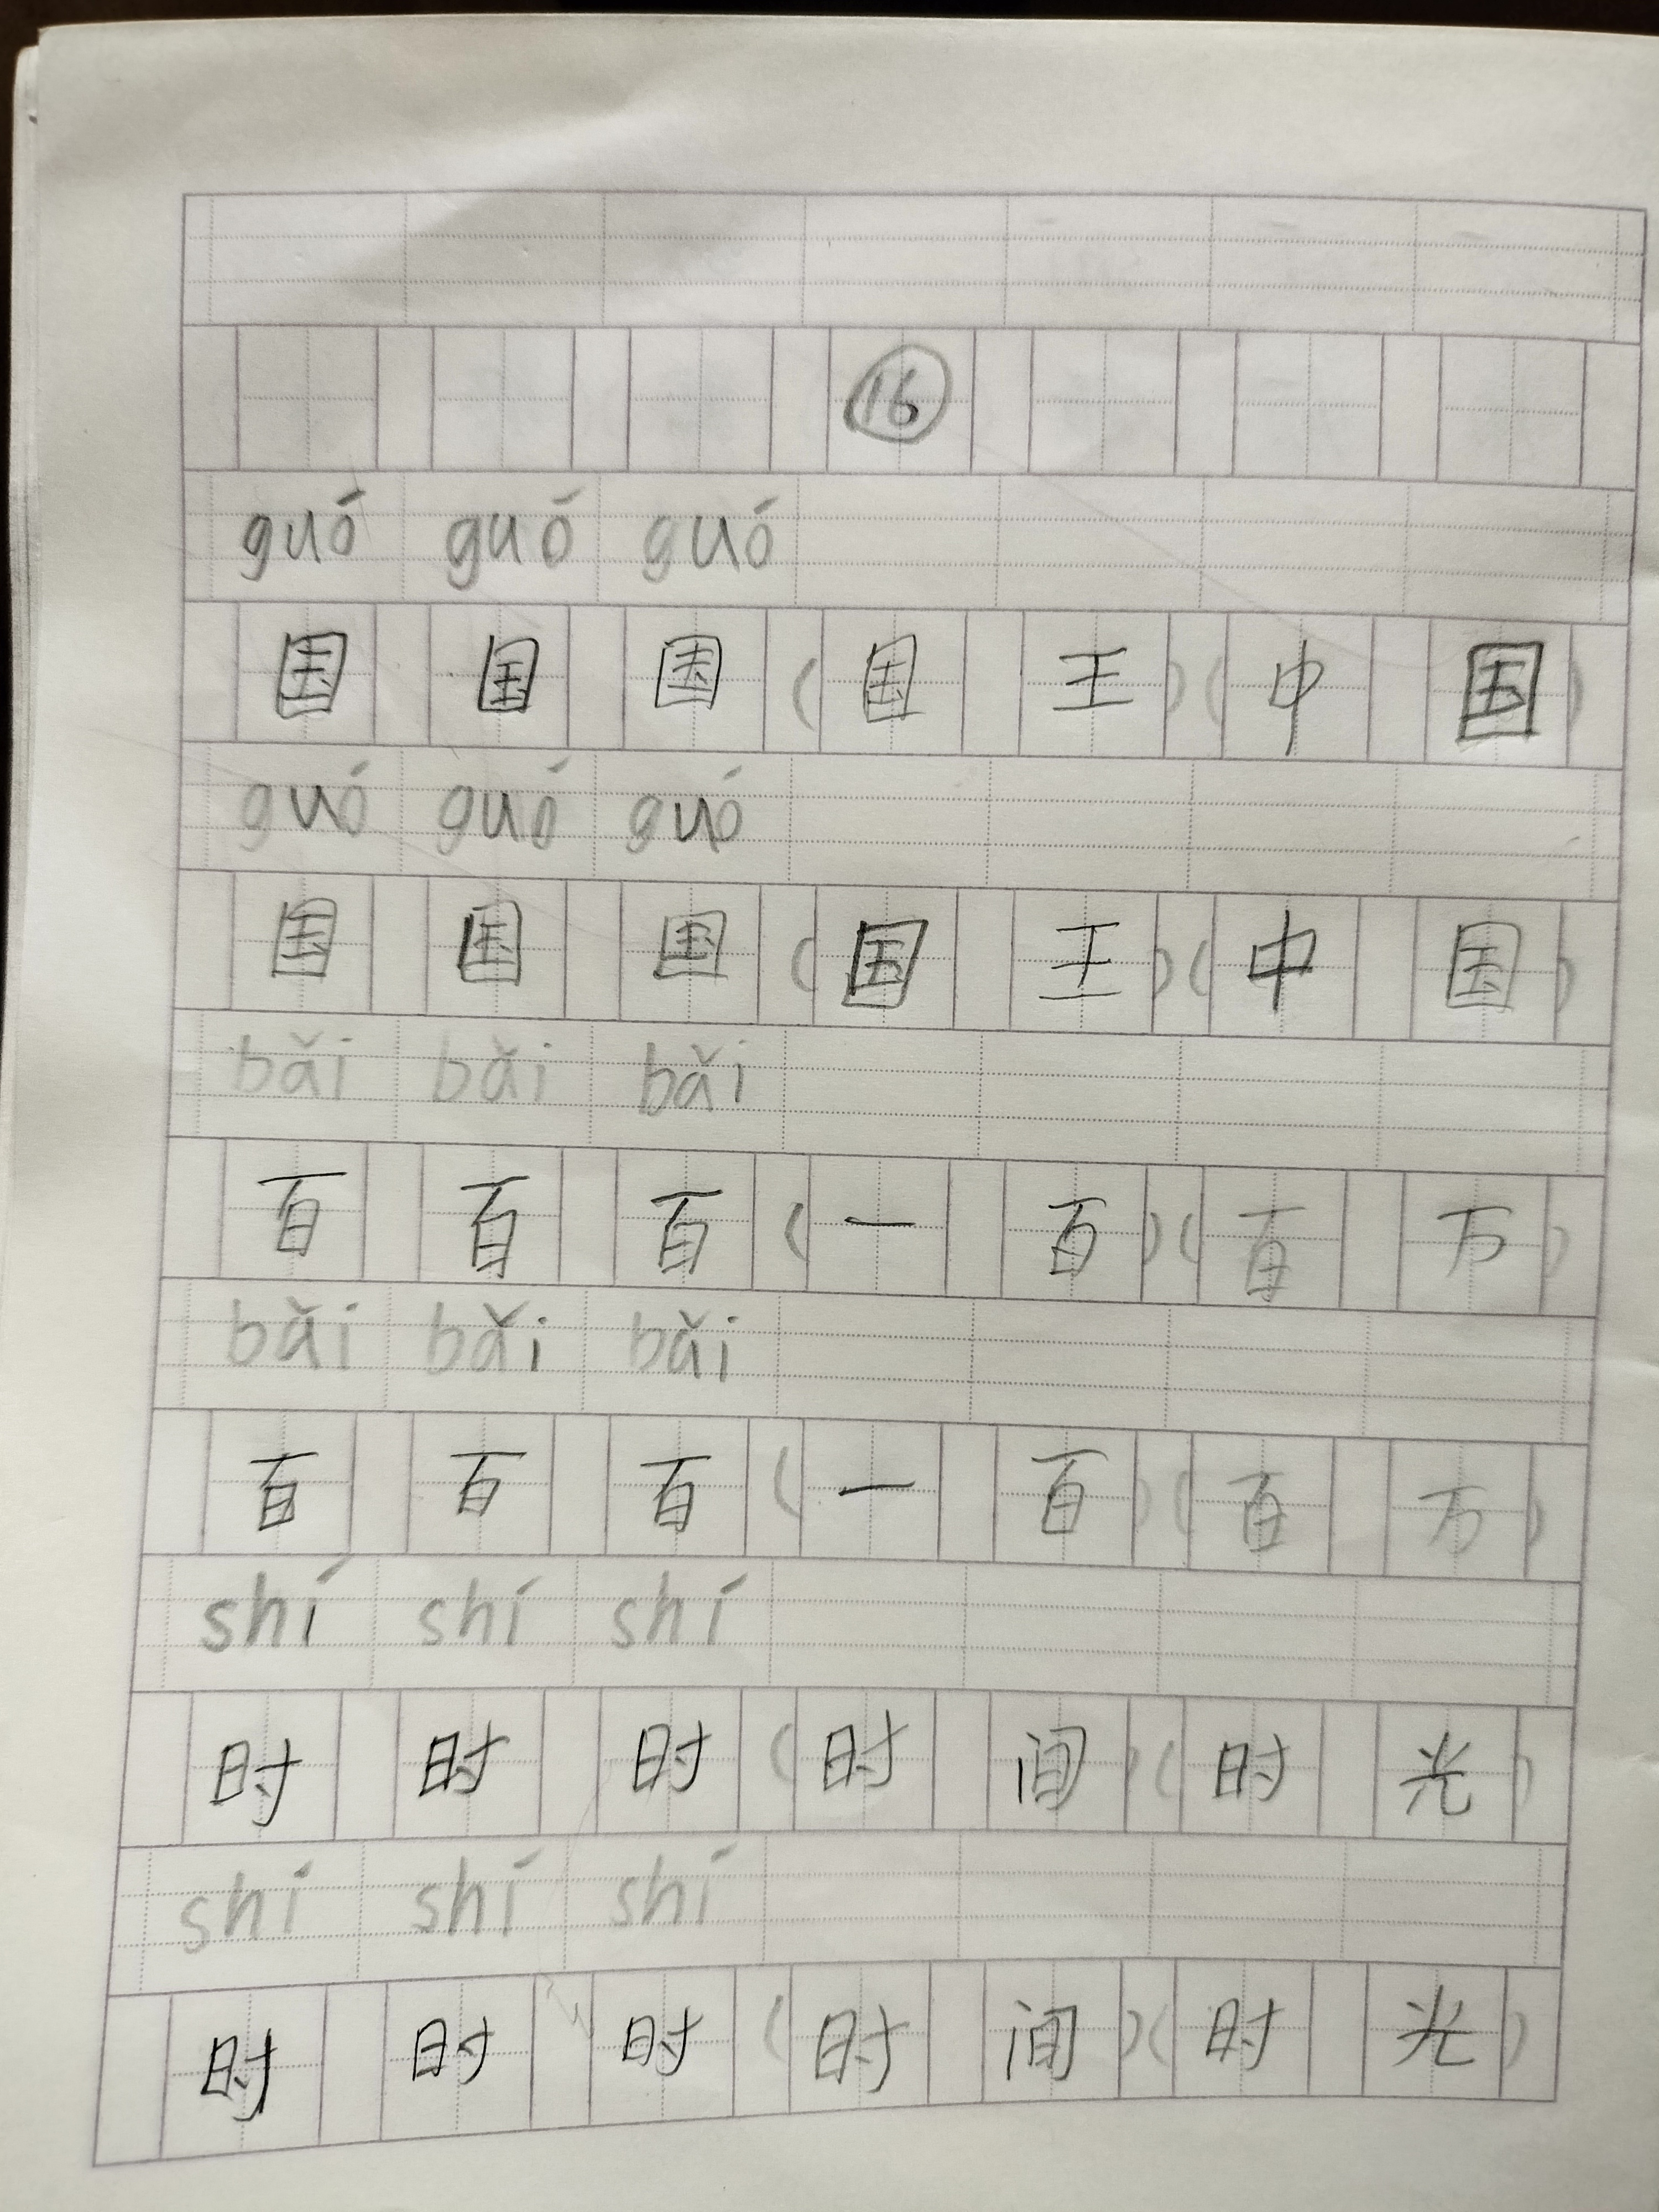 16
guó guó guó
国 国 国 (国 王)(中 国)
guó guó guó
国 国 国 (国 王)(中 国)
bǎi bǎi bǎi
百 百 百 (一 百)(百 万)
bǎi bǎi bǎi
百 百 百 (一 百)(百 万)
shí shí shí
时 时 时 (时 间)(时 光)
shí shí shí
时 时 时 (时 间)(时 光)